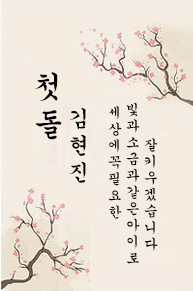 첫돌
김현진
세상에 꼭 필요한
빛과 소금과 같은 아이로
잘 키우겠습니다